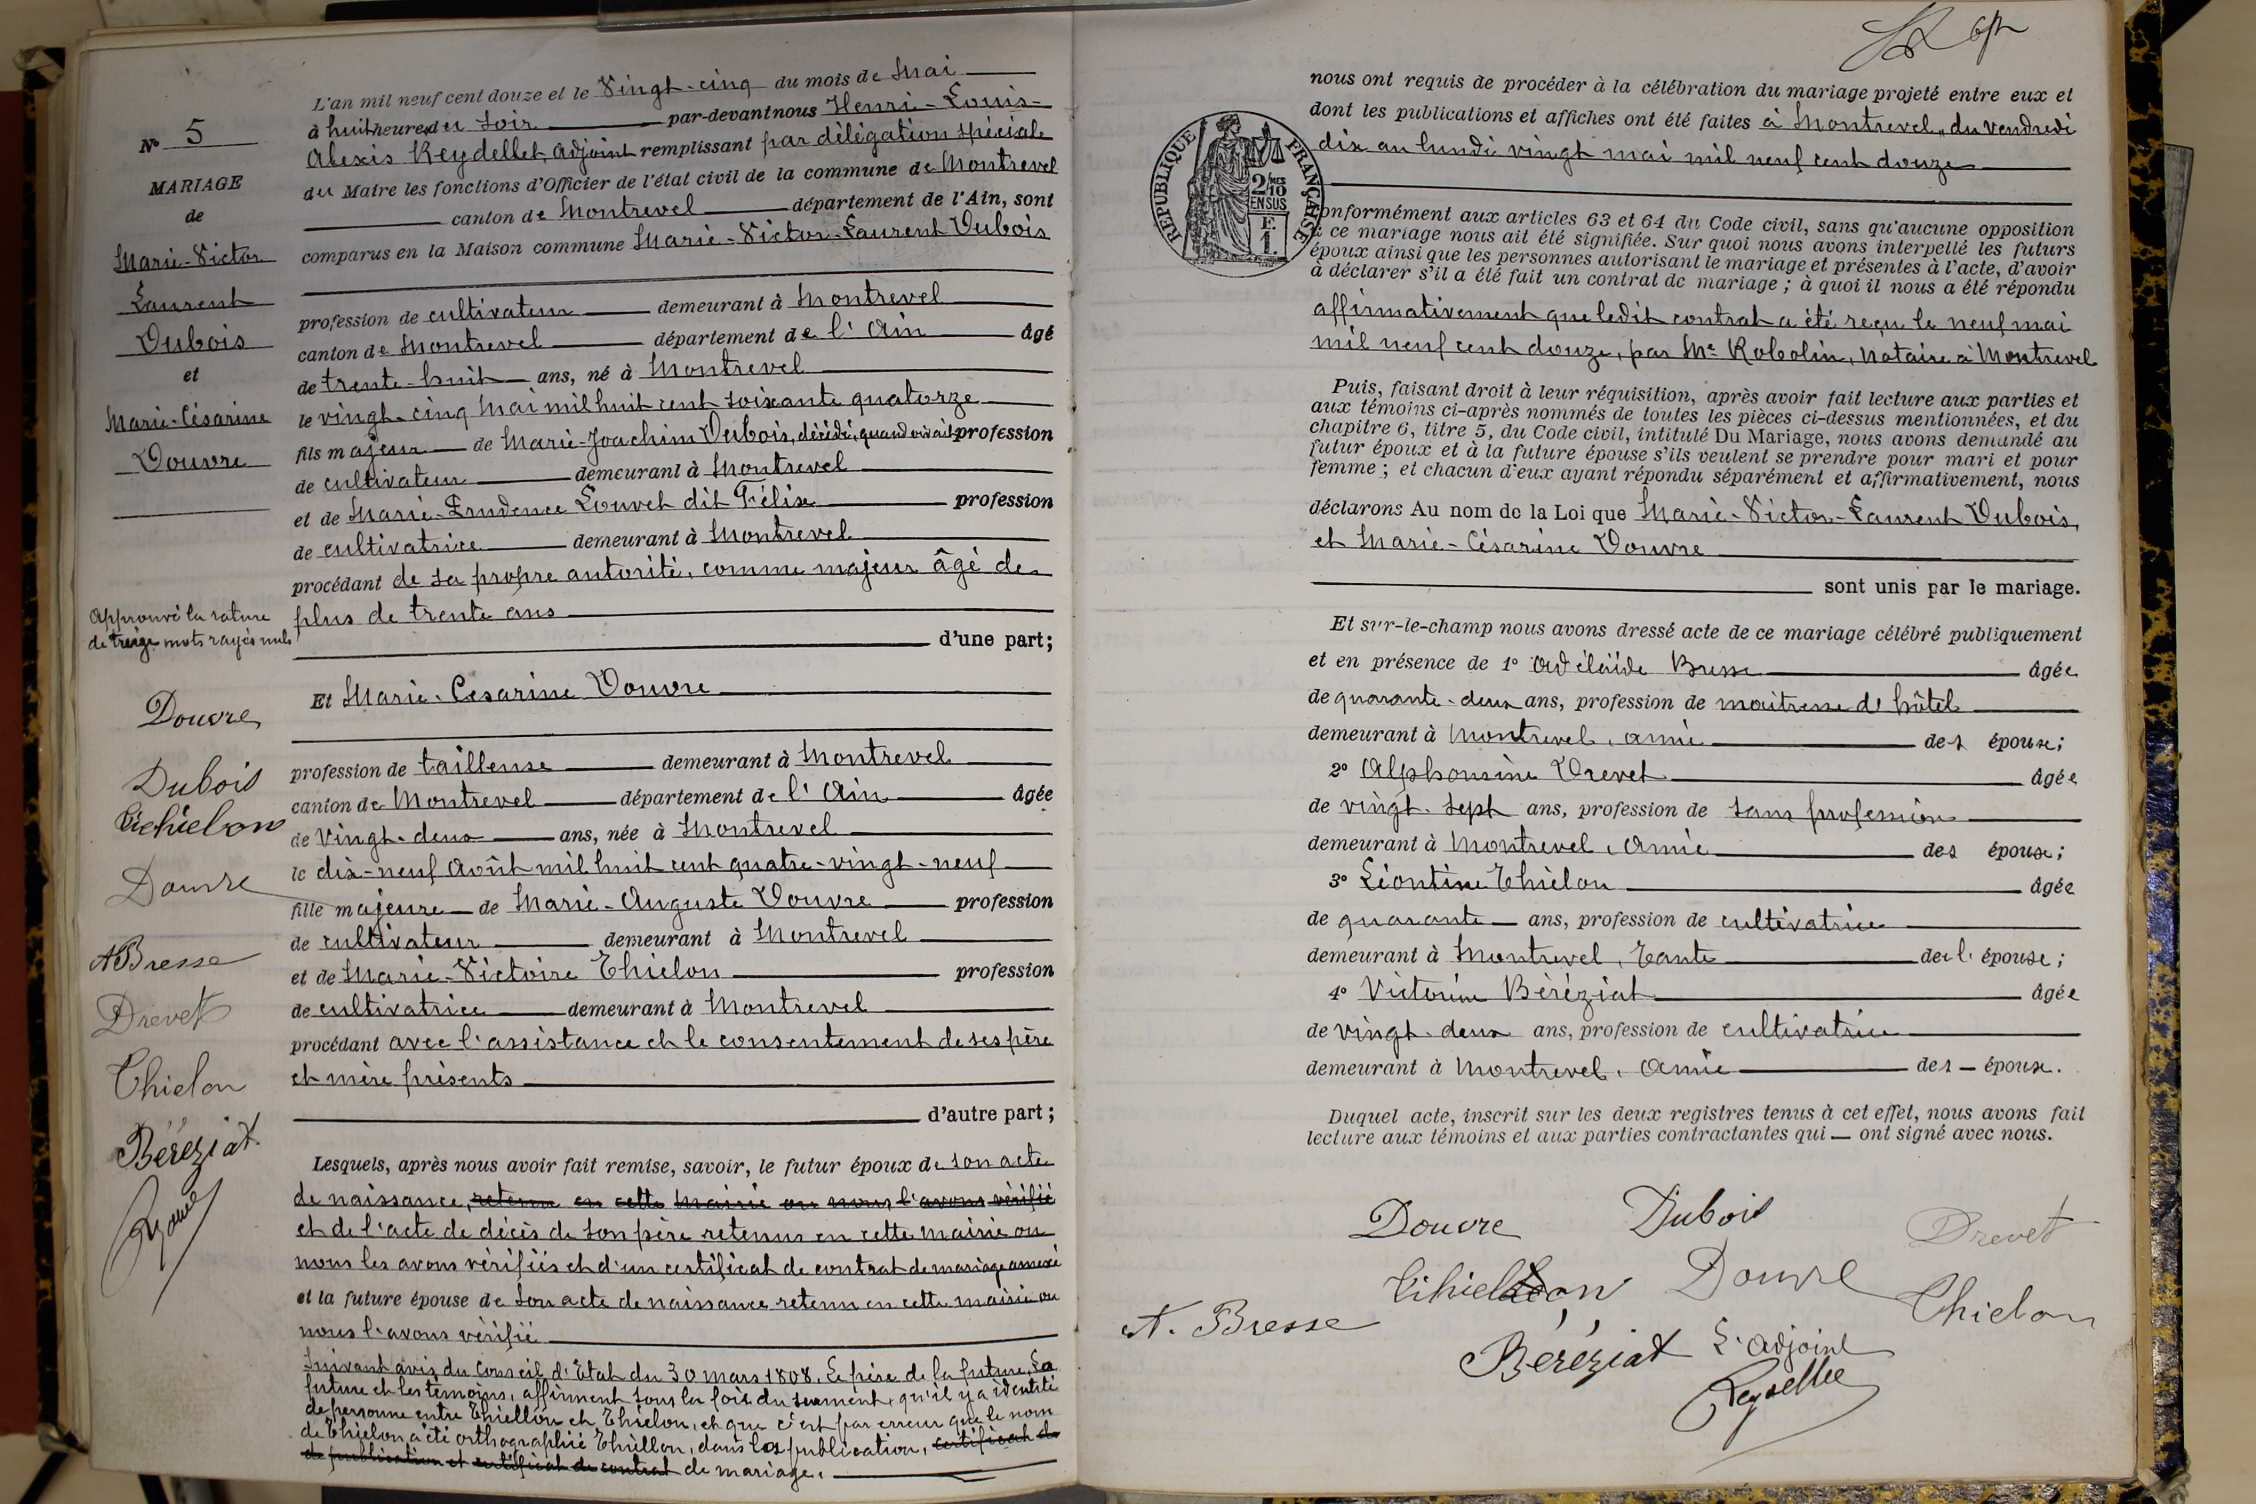 N° 5
MARIAGE
de
Marie-Victor
Laurent
Dubois
et
Marie-Césarine
Douvre
Approuvé la rature
de treize mots rayés nuls
Douvre
Dubois
Thielon
Douvre
A Bresse
Drevet
Thielon
Béréziat
L'an mil neuf cent douze et le Vingt-cinq du mois de Mai
à huit heures du soir par-devant nous Henri-Louis-
Alexis Reydellet, adjoint remplissant par délégation spéciale
du Maire les fonctions d'Officier de l'état civil de la commune de Montrevel
canton de Montrevel département de l'Ain, sont
comparus en la Maison commune Marie-Victor-Laurent Dubois
profession de cultivateur demeurant à Montrevel
canton de Montrevel département de l'Ain âgé
de trente-huit ans, né à Montrevel
le vingt-cinq Mai mil huit cent soixante quatorze
fils majeur de Marie-Joachim Dubois, décédé, quand vivait profession
de cultivateur demeurant à Montrevel
et de Marie-Prudence Louvet dit Félix profession
de cultivatrice demeurant à Montrevel
procédant de sa propre autorité, comme majeur âgé de
plus de trente ans
d'une part;
Et Marie-Césarine Douvre
profession de tailleuse demeurant à Montrevel
canton de Montrevel département de l'Ain âgée
de Vingt-deux ans, née à Montrevel
le dix-neuf Août mil huit cent quatre-vingt-neuf
fille majeure de Marie-Auguste Douvre profession
de cultivateur demeurant à Montrevel
et de Marie-Victoire Thielon profession
de cultivatrice demeurant à Montrevel
procédant avec l'assistance et le consentement de ses père
et mère présents
d'autre part;
Lesquels, après nous avoir fait remise, savoir, le futur époux de son acte
de naissance, retenu en cette mairie ou nous l'avons vérifié
et de l'acte de décès de son père retenus en cette mairie ou
nous les avons vérifiés et d'un certificat de contrat de mariage annexé
et la future épouse de son acte de naissance retenu en cette mairie ou
nous l'avons vérifié
Suivant avis du Conseil d'Etat du 30 mars 1808. Le père de la future, La
future et les témoins, affirment sous la foi du serment, qu'il y a identité
de personne entre Thiellon et Thielon, et que c'est par erreur que le nom
de Thielon a été orthographié Thiellon, dans la publication, certificat de
de publication et certificat de contrat de mariage.
nous ont requis de procéder à la célébration du mariage projeté entre eux et
dont les publications et affiches ont été faites à Montrevel, du vendredi
dix au lundi vingt mai mil neuf cent douze
RÉPUBLIQUE FRANÇAISE
2/10 MES
EN SUS
conformément aux articles 63 et 64 du Code civil, sans qu'aucune opposition
à ce mariage nous ait été signifiée. Sur quoi nous avons interpellé les futurs
époux ainsi que les personnes autorisant le mariage et présentes à l'acte, d'avoir
à déclarer s'il a été fait un contrat de mariage; à quoi il nous a été répondu
affirmativement que ledit contrat a été reçu le neuf mai
mil neuf cent douze, par Me Robolin, notaire à Montrevel
Puis, faisant droit à leur réquisition, après avoir fait lecture aux parties et
aux témoins ci-après nommés de toutes les pièces ci-dessus mentionnées, et du
chapitre 6, titre 5, du Code civil, intitulé Du Mariage, nous avons demandé au
futur époux et à la future épouse s'ils veulent se prendre pour mari et pour
femme; et chacun d'eux ayant répondu séparément et affirmativement, nous
déclarons Au nom de la Loi que Marie-Victor-Laurent Dubois,
et Marie-Césarine Douvre
sont unis par le mariage.
Et sur-le-champ nous avons dressé acte de ce mariage célébré publiquement
et en présence de 1° Adélaïde Bresse âgée
de quarante-deux ans, profession de maitresse d'hôtel
demeurant à Montrevel, amie des époux;
2° Alphonsine Drevet âgée
de vingt-sept ans, profession de sans profession
demeurant à Montrevel, amie des époux;
3° Léontine Thielon âgée
de quarante ans, profession de cultivatrice
demeurant à Montrevel, tante de l'épouse;
4° Victorine Béréziat âgée
de vingt-deux ans, profession de cultivatrice
demeurant à Montrevel, amie des époux.
Duquel acte, inscrit sur les deux registres tenus à cet effet, nous avons fait
lecture aux témoins et aux parties contractantes qui — ont signé avec nous.
Douvre Dubois Drevet
Thielon Douvre Thielon
A. Bresse
Béréziat L'adjoint
Reydellet